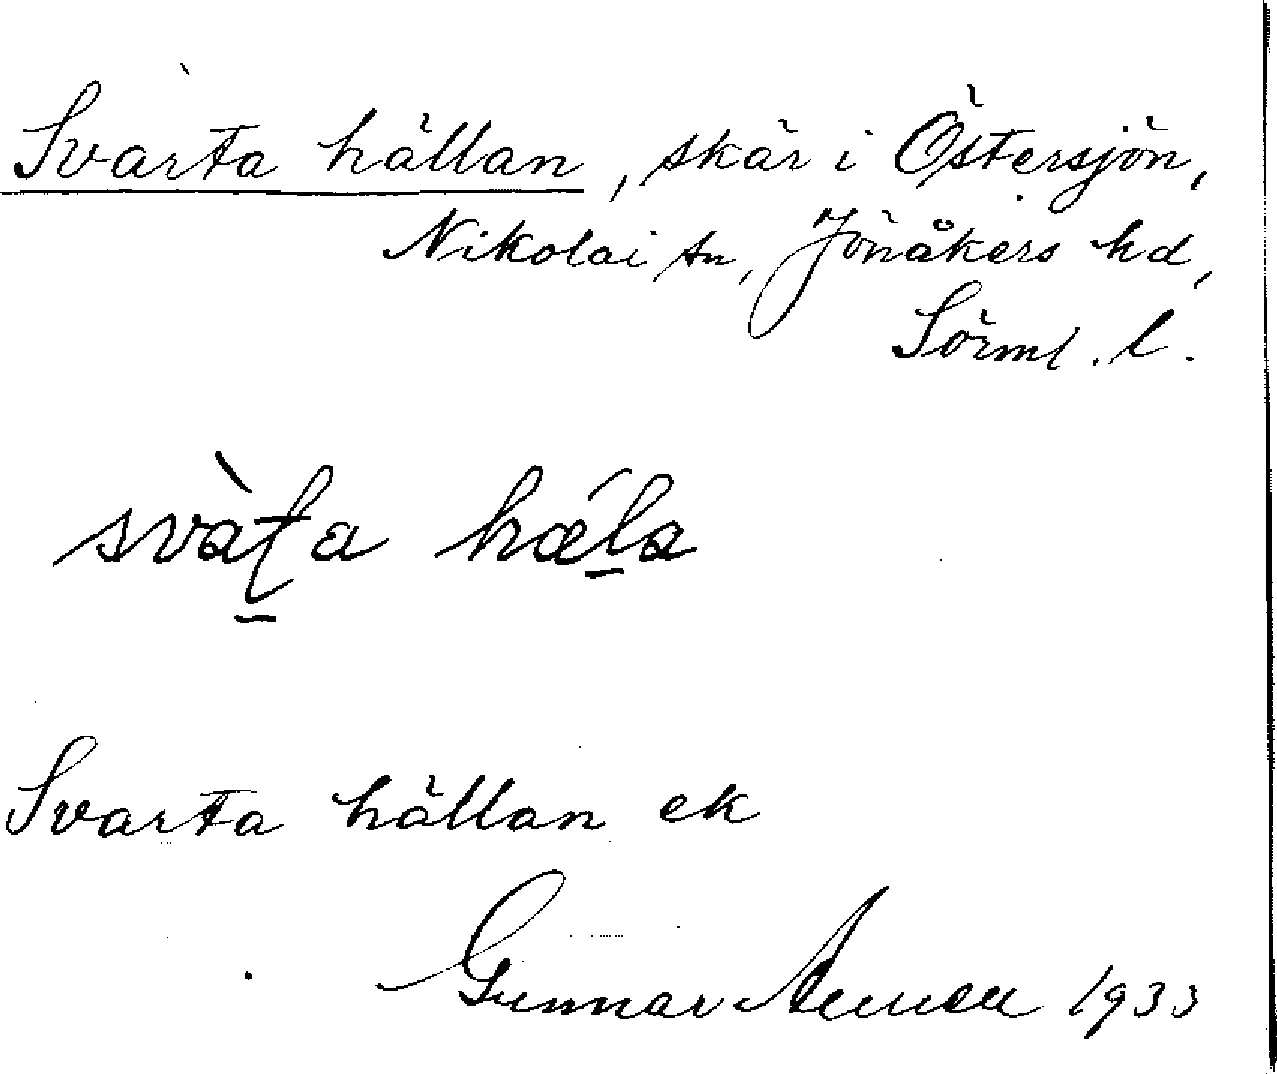 Svarta hällan, skär i Östersjön,
Nikolai sn, Jönåkers hd,
Sörml. l.
svàṯa hǽḻa
Svarta hällan ek
Gunnar 1933